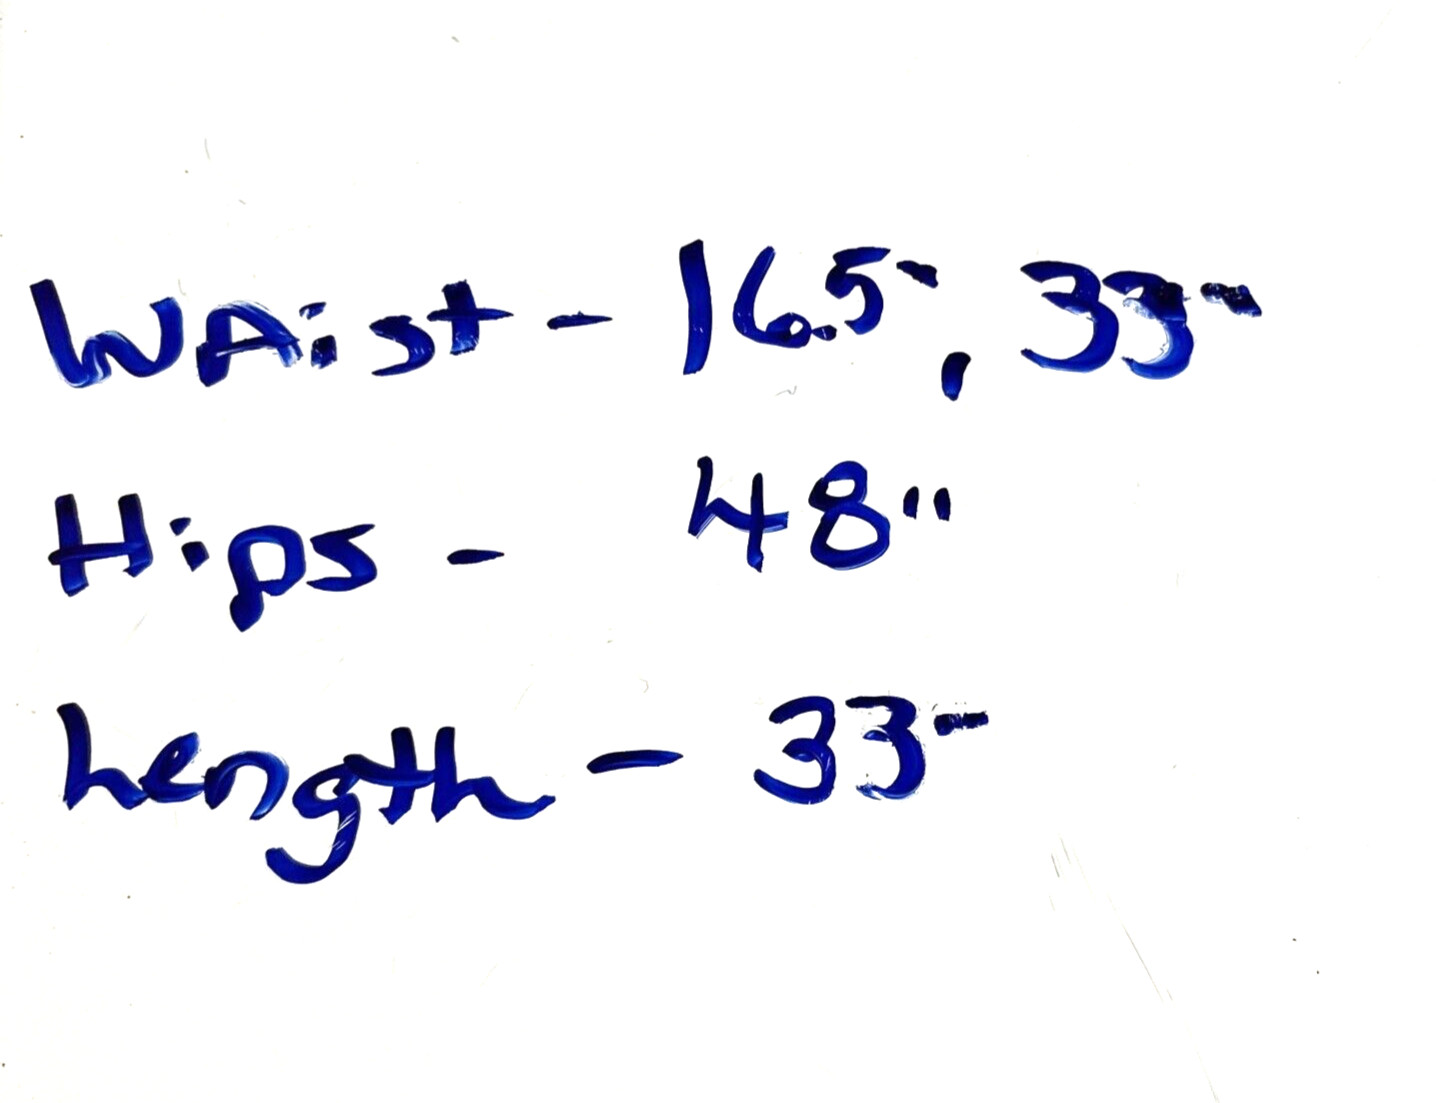 WAist - 16.5", 33"
Hips - 48"
Length - 33"